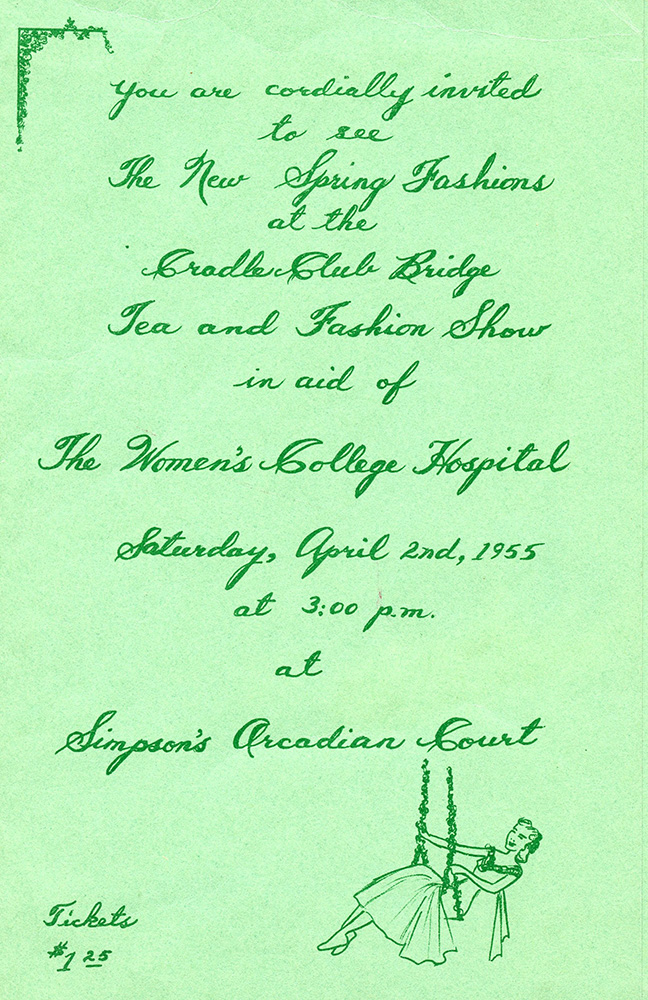 You are cordially invited
to see
The New Spring Fashions
at the
Cradle Club Bridge
Tea and Fashion Show
in aid of
The Women's College Hospital
Saturday, April 2nd, 1955
at 3:00 p.m.
at
Simpson's Arcadian Court
Tickets
$1 25